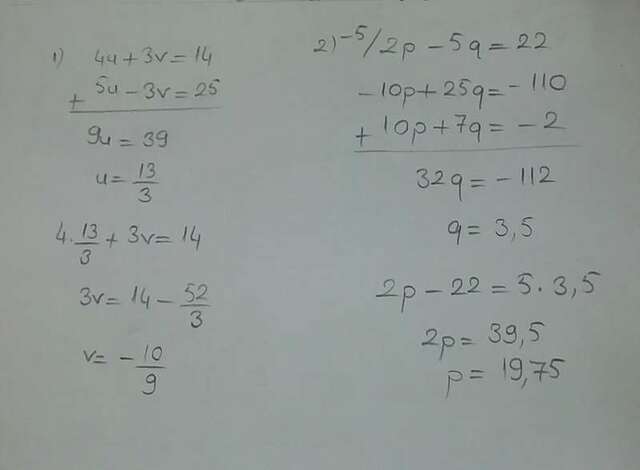 1) 4u + 3v = 14
+ 5u - 3v = 25
9u = 39
u = 13/3
4 · 13/3 + 3v = 14
3v = 14 - 52/3
v = - 10/9
2) -5/ 2p - 5q = 22
-10p + 25q = -110
+ 10p + 7q = -2
32q = -112
q = 3,5
2p - 22 = 5 · 3,5
2p = 39,5
p = 19,75